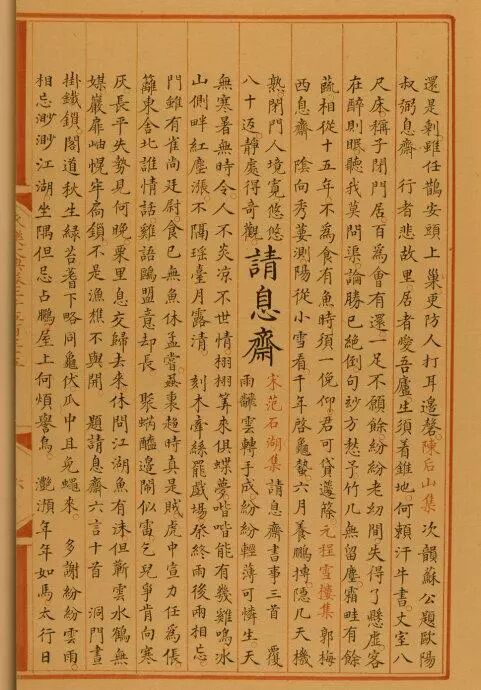 還是剩雖任鵲安頭上巢更防人打耳邊磬。陳后山集 次韻蘇公題歐陽
叔弼息齋 行者悲故里居者愛吾廬生須着錐地。何賴汗牛書。丈室八
尺床稱子閉門居百為會有還一足不願餘。紛紛老幼間失得了懸虛客
在醉則眠聽我莫問渠論勝已絕倒句妙方愁予竹几無留塵霜畦有餘
蔬相從十五年不為食有魚時須一俛仰君可貸蘧蒢元程雪樓集 郭梅
西息齋 陰向秀葽測陽從小雪看千年啓龜蟄六月養鵬摶。隱几天機
熟閉門人境寬悠悠
八十返。靜處得奇觀
請息齋
宋范石湖集 請息齋書事三首 覆
雨飜雲轉手成紛紛輕薄可憐生天
無寒暑無時令。人不炎涼不世情栩栩筭來俱蝶夢喈喈能有幾雞鳴冰
山側畔紅塵漲不隔瑤臺月露清。 刻木牽絲罷戲場祭終雨後兩相忘。
門雖有雀尚廷尉食已無魚休孟嘗蝨裏趨時真是賊虎中宣力任為倀
籬東舍北誰情話雞語鷗盟意却長 聚蚋醯邊鬧似雷乞兒爭肯向寒
灰長平失勢見何晚栗里息交歸去來休問江湖魚有沫但蘄雲水鶴無
媒巖扉岫幌牢扃鎖。不是漁樵不與開 題請息齋六言十首 洞門晝
掛鐵鎖。閣道秋生綠苔蓍下略同龜伏爪中且免蠅來。 多謝紛紛雲雨。
相忘渺渺江湖坐隅但忌占鵬屋上何煩譽烏。 灩澦年年如馬太行日